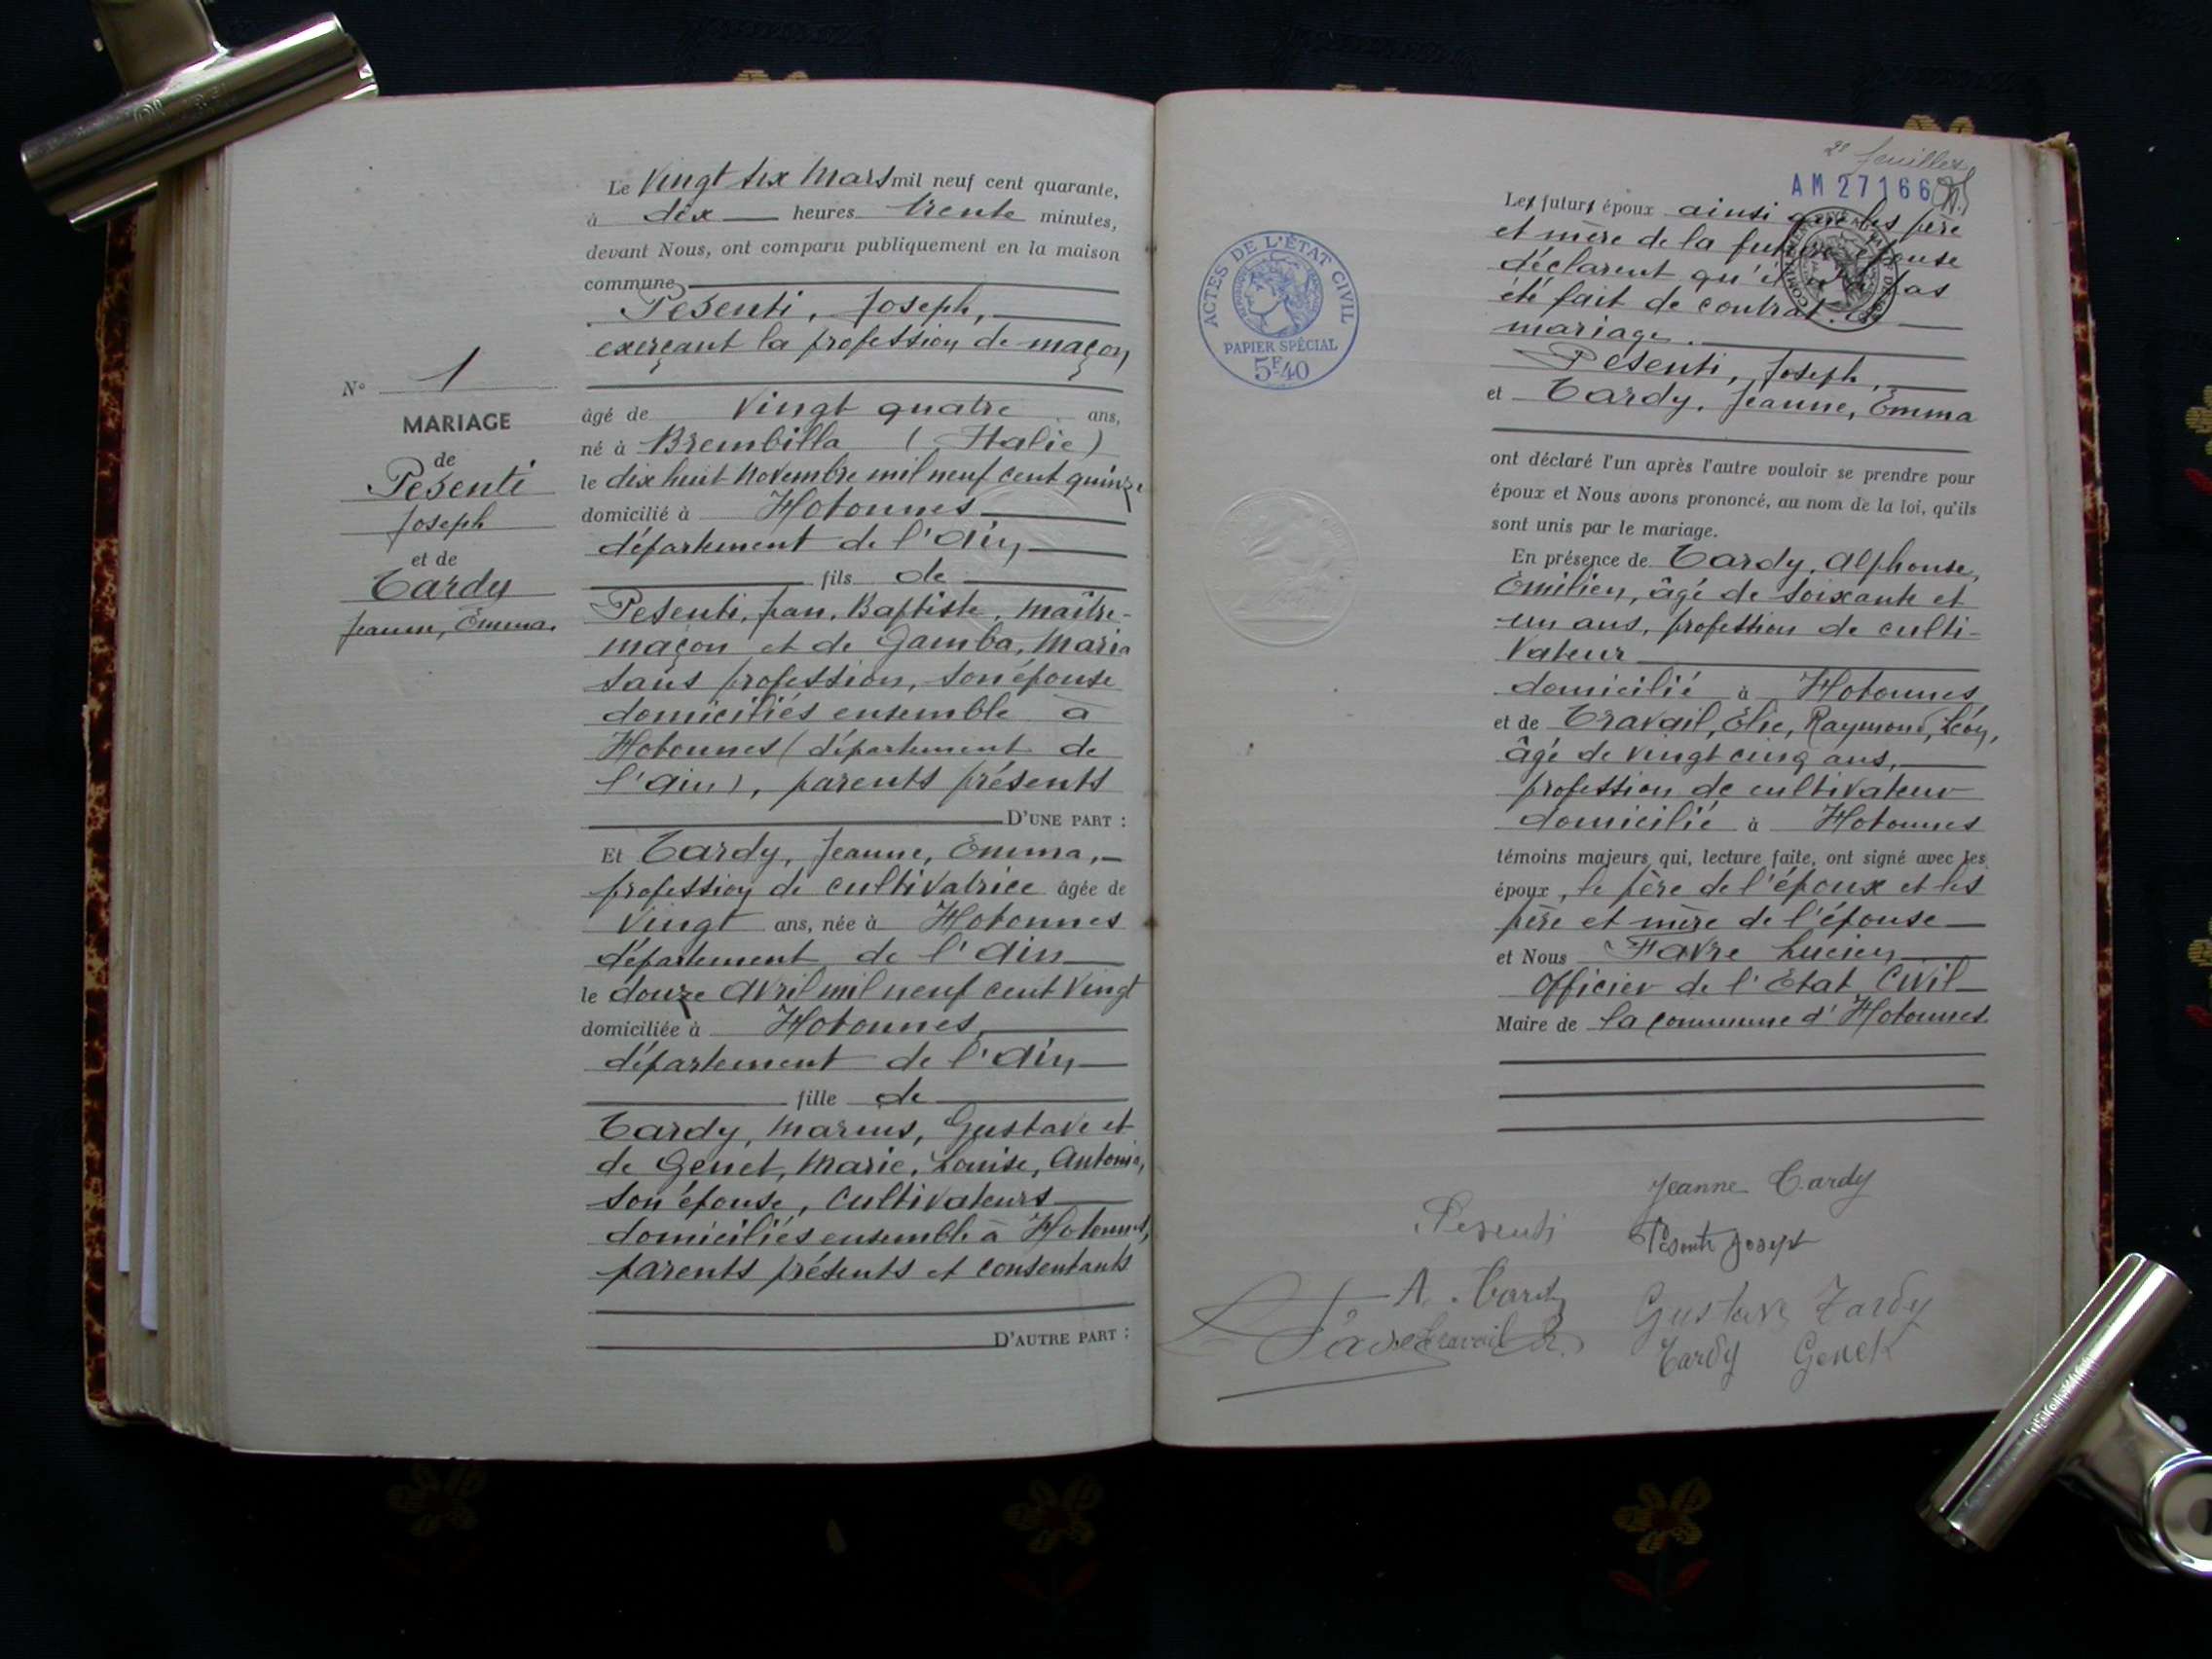 N° 1
MARIAGE
de
Pesenti
Joseph
et de
Tardy
Jeanne, Emma.
Le Vingt six Mars mil neuf cent quarante,
à dix heures trente minutes,
devant Nous, ont comparu publiquement en la maison
commune
Pesenti, Joseph,
exerçant la profession de maçon
âgé de Vingt quatre ans,
né à Brembilla (Italie)
le dix huit Novembre mil neuf cent quinze
domicilié à Hotonnes
département de l'Ain
fils de
Pesenti, Jean, Baptiste, maître-
maçon et de Gamba, Maria
sans profession, son épouse
domiciliés ensemble à
Hotonnes (département de
l'Ain), parents présents
D'UNE PART :
Et Tardy, Jeanne, Emma,
profession de cultivatrice âgée de
Vingt ans, née à Hotonnes
département de l'Ain
le douze Avril mil neuf cent Vingt
domiciliée à Hotonnes
département de l'Ain
fille de
Tardy, Marius, Gustave et
de Genet, Marie, Louise, Antonia,
son épouse, Cultivateurs
domiciliés ensemble à Hotonnes,
parents présents et consentants
D'AUTRE PART :
2e feuillet
AM 27166
ACTES DE L'ÉTAT CIVIL
PAPIER SPÉCIAL
5F40
Les futurs époux ainsi que les père
et mère de la future épouse
déclarent qu'il n'a pas
été fait de contrat de
mariage.
Pesenti, Joseph,
et Tardy, Jeanne, Emma
ont déclaré l'un après l'autre vouloir se prendre pour
époux et Nous avons prononcé, au nom de la loi, qu'ils
sont unis par le mariage.
En présence de Tardy, Alphonse,
Emilien, âgé de soixante et
un ans, profession de culti-
vateur
domicilié à Hotonnes
et de Travail, Elie, Raymond, Léon,
âgé de vingt cinq ans,
profession de cultivateur
domicilié à Hotonnes
témoins majeurs qui, lecture faite, ont signé avec les
époux, le père de l'époux et les
père et mère de l'épouse
et Nous Favre Lucien
Officier de l'Etat Civil
Maire de la commune d'Hotonnes
Jeanne Tardy
Pesenti
Pesenti Joseph
A. Tardy
Gustave Tardy
Favre
Travail
Tardy Genet